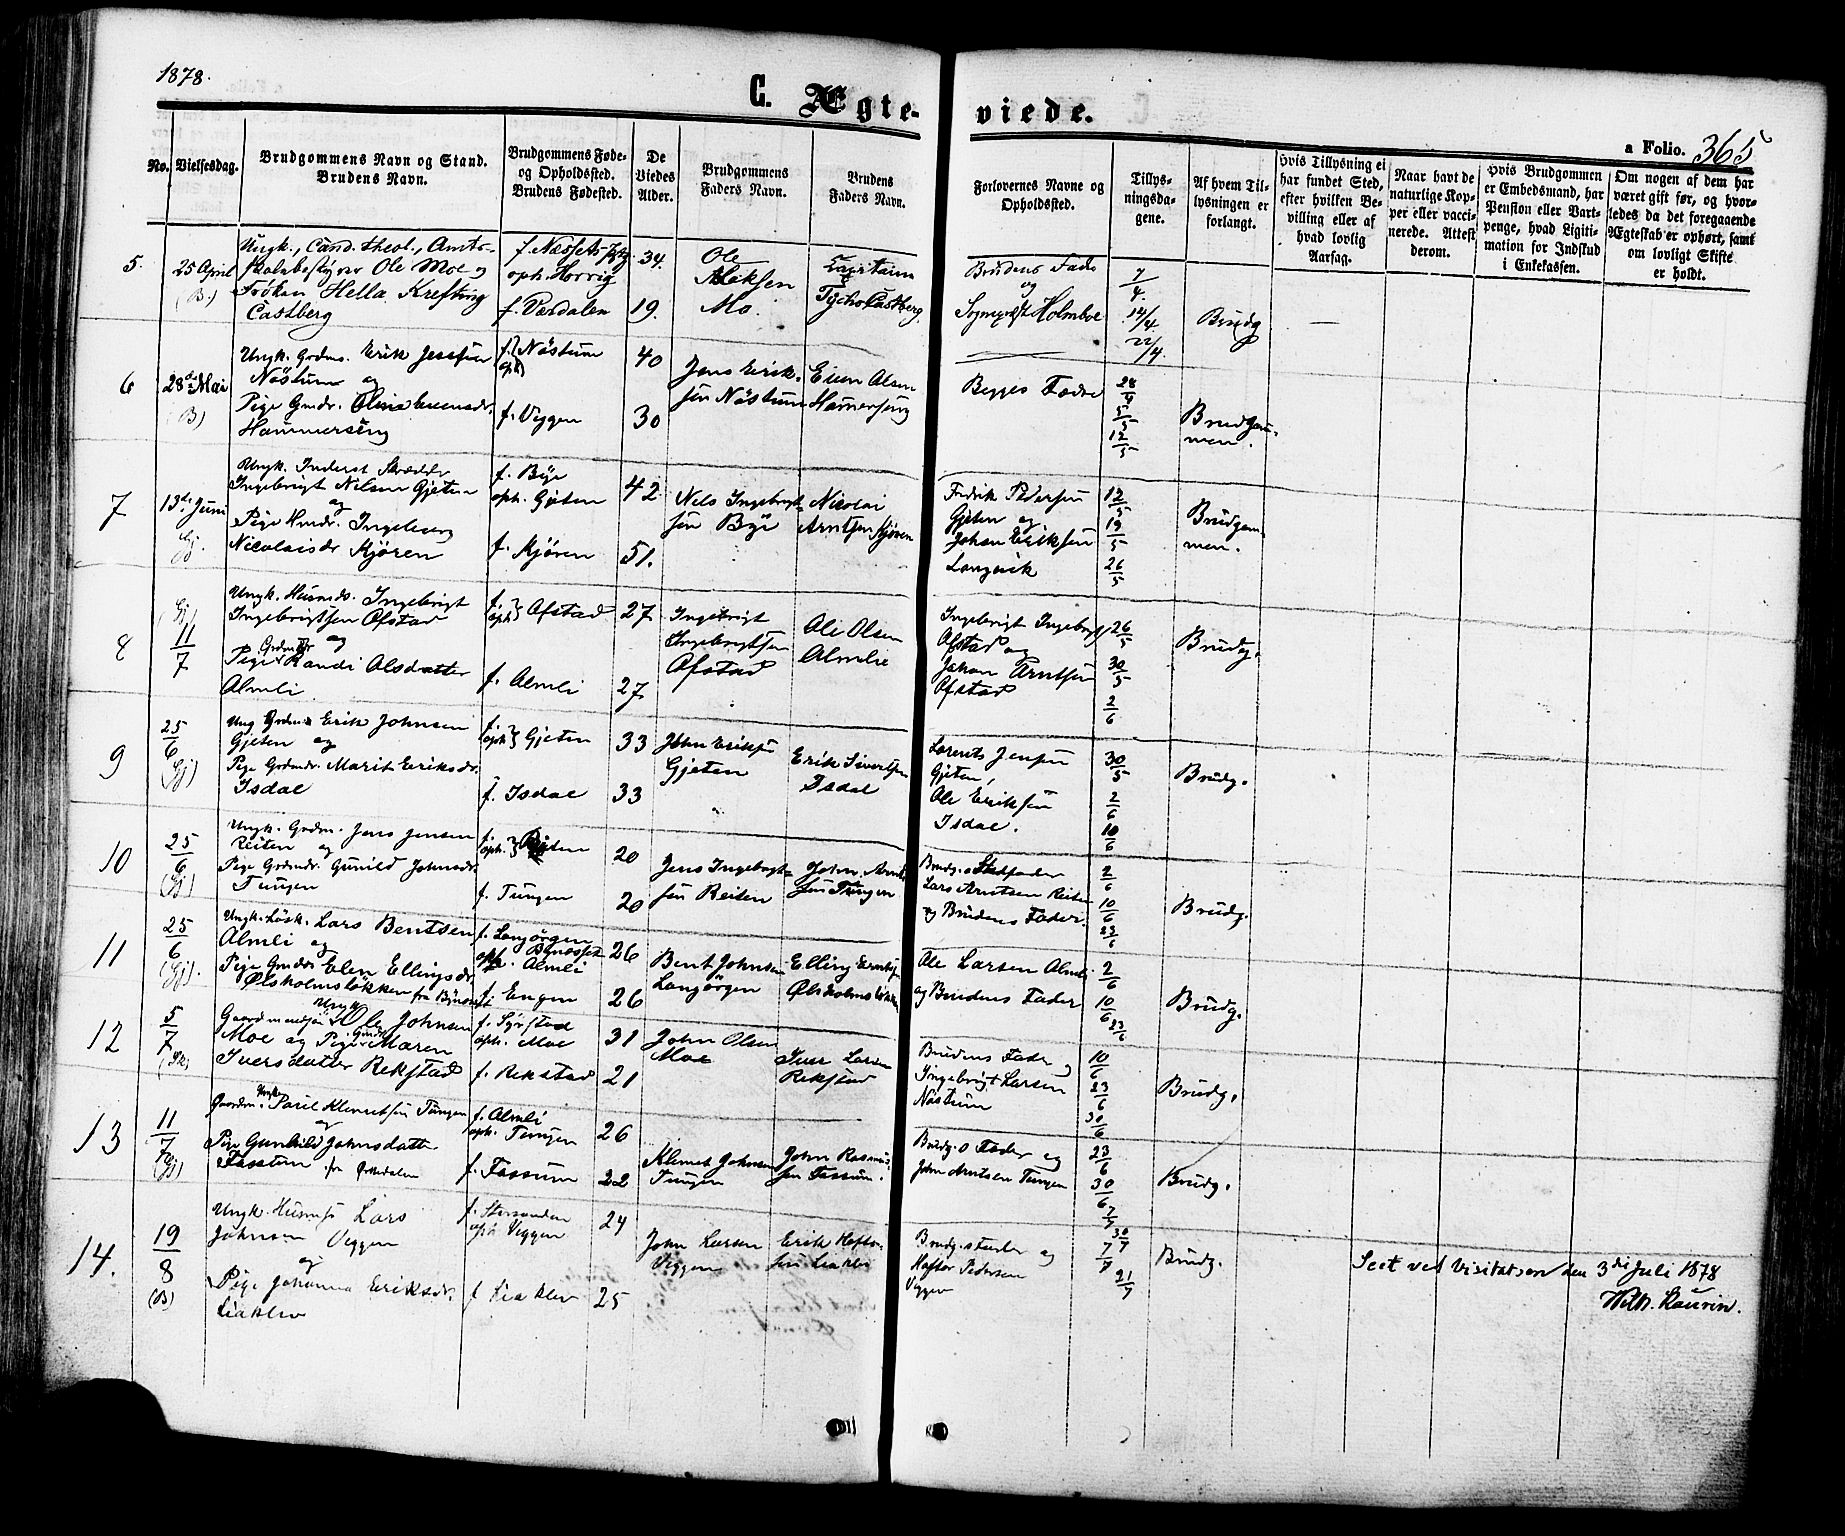 1878.
C. Ægte-
viede.
a Folio. 365
No.
Vielsesdag.
Brudgommens Navn og Stand.
Brudens Navn.
Brudgommens Føde-
og Opholdssted.
Brudens Fødested.
De
Viedes
Alder.
Brudgommens
Faders Navn.
Brudens
Faders Navn.
Forlovernes Navne og
Opholdssted.
Tillys-
ningsda-
gene.
Af hvem Til-
lysningen er
forlangt.
Hvis Tillysning ei
har fundet Sted,
efter hvilken Be-
villing eller af
hvad lovlig
Aarsag.
Naar havt de
naturlige Kop-
per eller vacci-
nerede. Attest
derom.
Hvis Brudgommen
er Embedsmand, har
Pension eller Vart-
penge, hvad Ligiti-
mation for Indskud
i Enkekassen.
Om nogen af dem har
været gift før, og hvor-
ledes da det foregaaende
Ægteskab er ophørt, samt
om lovligt Skifte
er holdt.
5.
25 April
(B.)
Ungk., Cand. theol., Amts-
skolebestyrer Ole Moe og
Frøken Hella Krefting
Castberg
f. Næsset
oph.
f. Værdalen
34.
19.
Ole
Aleksen
Mo.
Capitain
Tycho Castberg
Brudens Fader
og
Sognepræst Holmboe
7/4.
14/4.
22/4.
Brudg
—
6
28de Mai
(B)
Ungk. Grdm. Erik Jensen
Nöstum og
Pige Gmdr. Olina
Hammerseng
f.
oph } Nöstum
f. Veggen
40
30
Jens Erik-
sen Nöstum
Even Olsen
Hamerseng
Begges Fædre
28/4
5/5
12/5
Brudgom-
men.
7
13de Juni
Gj.
Ungk. Inderst Skrædder
Ingebrigt Nilsen Gjeten
og
Pige Hmdr. Ingeborg
Nicolaisdr Kjören
f. Bye
oph. Gjeten
f. Kjören
42.
51.
Nels Ingebrigt-
sen Bye
Nicolai
Arntsen Kjören
Fredrik Pedersen
Gjeten og
Johan Eriksen
Langvik
12/5
19/5
26/5
Brudgom-
men.
8
(Gj)
11/7
Ungk. Husmds. Ingebrigt
Ingebrigtsen Ofstad
og
Pige Grdmdr Randi Olsdatter
Almli
f.
oph } Ofstad
f. Almli
27
27
Ingebrigt
Ingebrigtsen
Ofstad
Ole Olsen
Almlie
Ingebrigt Ingebrigts
Ofstad og
Johan Arntsen
Ofstad
26/5
30/5
2/6
Brudg.
9
25/6
(Gj)
Ung Grdm Erik Johnsen
Gjeten og
Pige Grdmdr. Marit Eriksdr.
Isdal
f.
oph } Gjeten
f. Isdal
33
33
John Eriksen
Gjeten
Erik Sivertsen
Isdal
Lorents Jensen
Gjeten,
Ole Eriksen
Isdal.
30/5
2/6
10/6
Brudg.
10
25/6
(Gj)
Ungk. Grdm. Jens Jensen
Reiten og
Pige Grdmdr. Gunild Johnsdr.
Tungen
f.
oph. } Reiten
f. Tungen
20
20
Jens Ingebrigt-
sen Reiten
John Arnt-
sen Tungen
Brudg.s Stedfader
Lars Arntsen Reiten
og Brudens Fader.
2/6
10/6
23/6
Brudg.
11
25/6
(Gj).
Ungk. Løsk. Lars Bentsen
Almli og
Pige Gmdr Elen Ellingsdr
Ølsholmsløkken fra Bynæsset
f. Langörgen
Bynæsset
oph. Almli
f. Engen
26
26
Bent Johnsen
Langörgen
Elling Arntsen
Ølsholmsløkken
Ole Larsen Almli
og Brudens Fader
2/6
10/6
23/6
Brudg.
12
5/7
Gaardmandssøn Ungk. Ole Johnsen
Moe og Pige Gmdr Maren
Iversdatter Rekstad
f. Syrstad
oph. Moe
f. Rekstad
31
21
John Olsen
Moe
Iver Larsen
Rekstad
Brudens Fader og
Ingebrigt Larsen
Nöstum
10/6
23/6
30/6
Brudg.
13
11/7
(Gj)
Gaardm. Ungk. Paul Klemetsen Tungen
og
Pige Gunhild Johnsdatter
Fossum fra Orkedalen
f. Almli
oph. Tungen
f. Fossum
26
22
Klemet Johnsen
Tungen
John Rasmus-
sen Fossum.
Brudg.s Fader og
John Arntsen Tungen
23/6
30/6
7/7
Brudg.
14.
19/8
(B)
Ungk. Husms Lars
Johnsen Veggen
og
Pige Johanna Eriksdr.
Liaklev
f. Storsanden
oph Veggen
f Liaklev
24
25
John Larsen
Veggen
Erik Hafton
sen Liaklev
Brudg.s Fader og
Haftor Pedersen
Veggen
30/7
7/7
21/7
Brudg.
Seet ved Visitatsen den 3die Juli 1878
Wilh. Laurin.